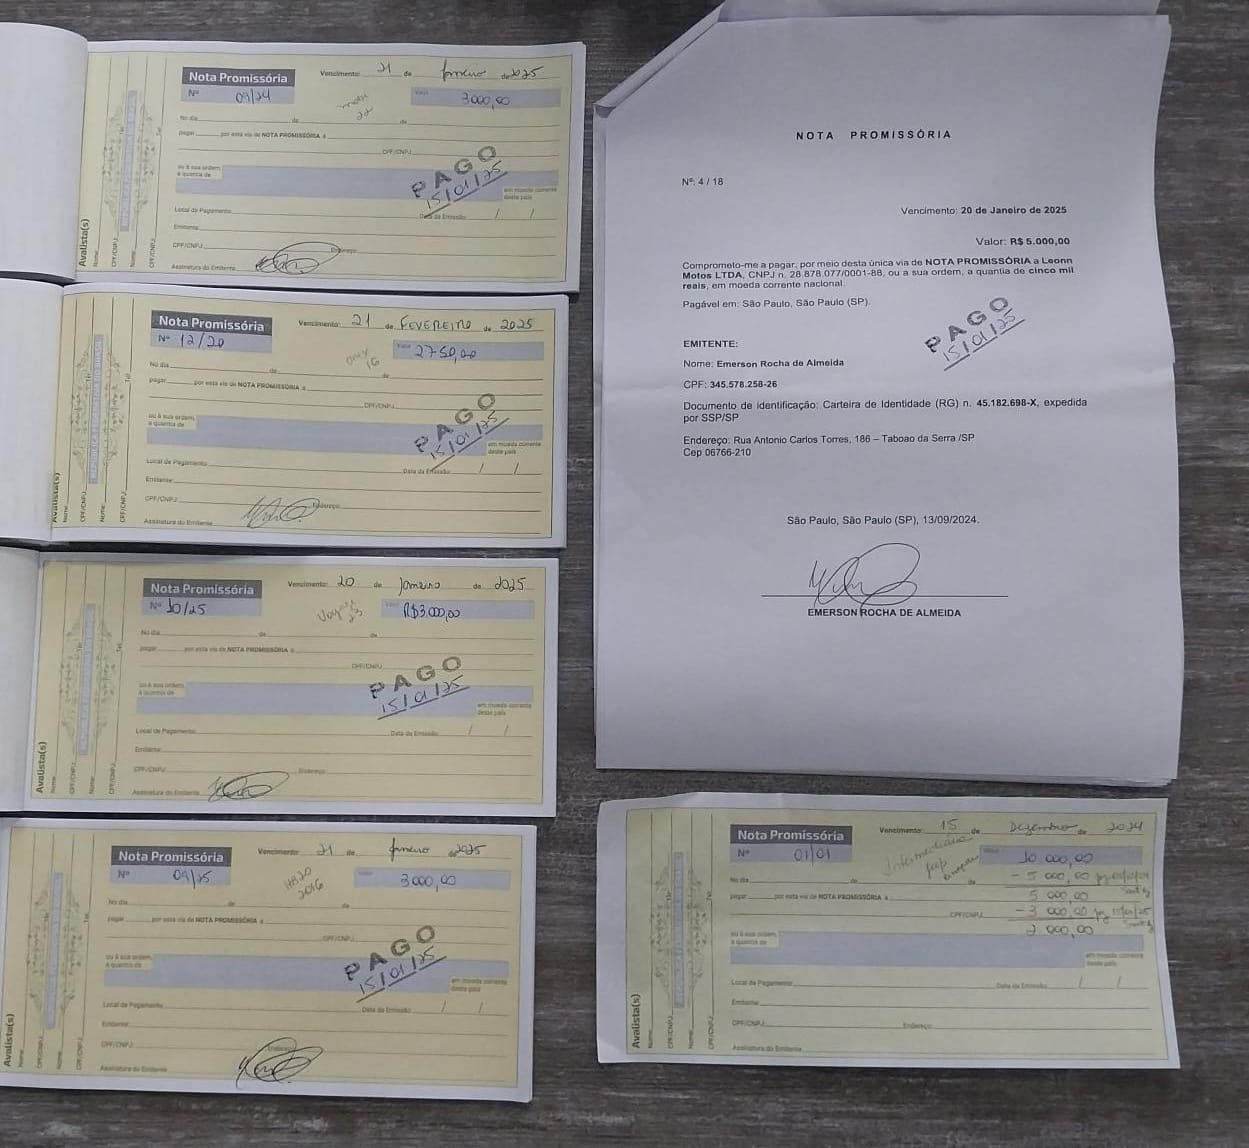 Nota Promissória
Vencimento: 21 de Janeiro de 2025
Nº 09/24
Valor 3000,00
No dia de de
pagar por esta via de NOTA PROMISSÓRIA a
CPF/CNPJ
ou à sua ordem,
a quantia de
em moeda corrente
deste país
PAGO
15/01/25
Local de Pagamento Data da Emissão / /
Emitente
CPF/CNPJ Endereço
Assinatura do Emitente
Avalista(s)
Nome:
CPF/CNPJ:
Nome:
CPF/CNPJ:
Tel:
Nota Promissória
Vencimento: 21 de FEVEREIRO de 2025
Nº 12/20
Valor 2750,00
No dia de de
pagar por esta via de NOTA PROMISSÓRIA a
CPF/CNPJ
ou à sua ordem,
a quantia de
em moeda corrente
deste país
PAGO
15/01/25
Local de Pagamento Data da Emissão / /
Emitente
CPF/CNPJ Endereço
Assinatura do Emitente
Avalista(s)
Nome:
CPF/CNPJ:
Nome:
CPF/CNPJ:
Tel:
Nota Promissória
Vencimento: 20 de Janeiro de 2025
Nº 10/25
Valor R$3.000,00
No dia de de
pagar por esta via de NOTA PROMISSÓRIA a
CPF/CNPJ
ou à sua ordem,
a quantia de
em moeda corrente
deste país
PAGO
15/01/25
Local de Pagamento Data da Emissão / /
Emitente
CPF/CNPJ Endereço
Assinatura do Emitente
Avalista(s)
Nome:
CPF/CNPJ:
Nome:
CPF/CNPJ:
Tel:
Nota Promissória
Vencimento: 21 de Janeiro de 2025
Nº 09/25
HB20
2016
Valor 3000,00
No dia de de
pagar por esta via de NOTA PROMISSÓRIA a
CPF/CNPJ
ou à sua ordem,
a quantia de
em moeda corrente
deste país
PAGO
15/01/25
Local de Pagamento Data da Emissão / /
Emitente
CPF/CNPJ Endereço
Assinatura do Emitente
Avalista(s)
Nome:
CPF/CNPJ:
Nome:
CPF/CNPJ:
Tel:
NOTA PROMISSÓRIA
Nº: 4 / 18
Vencimento: 20 de Janeiro de 2025
Valor: R$ 5.000,00
Comprometo-me a pagar, por meio desta única via de NOTA PROMISSÓRIA a Leonn
Motos LTDA, CNPJ n. 28.878.077/0001-88, ou a sua ordem, a quantia de cinco mil
reais, em moeda corrente nacional.
Pagável em: São Paulo, São Paulo (SP).
PAGO
15/01/25
EMITENTE:
Nome: Emerson Rocha de Almeida
CPF: 345.578.258-26
Documento de identificação: Carteira de Identidade (RG) n. 45.182.698-X, expedida
por SSP/SP
Endereço: Rua Antonio Carlos Torres, 186 – Taboao da Serra /SP
Cep 06766-210
São Paulo, São Paulo (SP), 13/09/2024.
EMERSON ROCHA DE ALMEIDA
Nota Promissória
Vencimento: 15 de Dezembro de 2024
Nº 01/01
Intermediária
Valor 10 000,00
- 5 000,00
5 000,00
- 3 000,00
2 000,00
No dia de de
pagar por esta via de NOTA PROMISSÓRIA a
CPF/CNPJ
ou à sua ordem,
a quantia de
em moeda corrente
deste país
Local de Pagamento Data da Emissão / /
Emitente
CPF/CNPJ Endereço
Assinatura do Emitente
Avalista(s)
Nome:
CPF/CNPJ:
Nome:
CPF/CNPJ:
Tel: